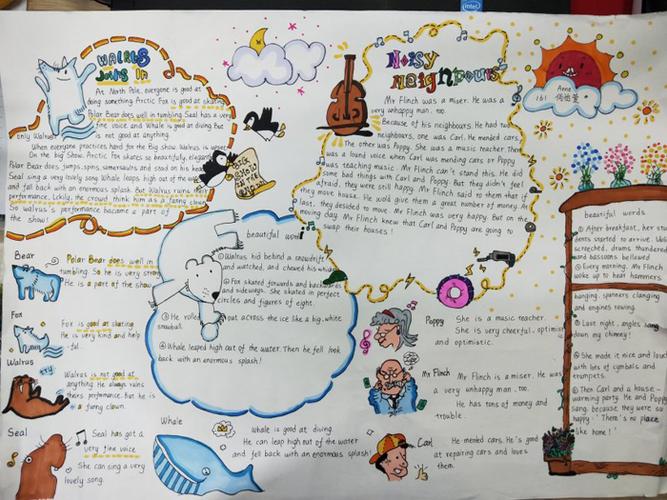 WALRUS
JOINS IN
At North Pole, everyone is good at
doing something. Arctic Fox is good at skating.
Polar Bear does well in tumbling. Seal has a very
fine voice and Whale is good at diving. But
only Walrus is not good at anything.
When everyone practices hard for the Big show. Walrus is upset.
On the big Show. Arctic Fox skates so beautifully, elegant
Polar Bear does, jumps, spins, somersaults and stood on his head
Seal sing a very lovely song. Whale leaps high out of the wa
and fall back with an enormous splash. But Walrus ruins their
performance. Lckily, the crowd think him as a funny clown
So walrus's performance became a part of
the show!
BIG
SHOW
Noisy
Neighbours
Mr Flinch was a miser. He was a
very unhappy man, too.
Because of his neighbours. He had two
neighbours, one was Carl. He mended cars.
The other was Poppy. She was a music teacher. There
was a lound voice when Carl was mending cars or Poppy
was teaching music. Mr Flinch can't stand this. He did
some bad things with Carl and Poppy. But they didn't feel
afraid, they were still happy. Mr Flinch said to them that if
they move house. He would give them a great number of money. At
last, they decided to move. Mr Flinch was very happy. But on the
moving day. Mr Flinch knew that Carl and Poppy are going to
swap their houses!
Anna
161
beautiful wor
① Walrus hid behind a snowdrift
and watched, and chewed his whisk
② Fox skated forwards and backwards
and sideways. She skated in perfect
circles and figures of eight.
③ He rolled out across the ice like a big, white
snowball.
④ Whale leaped high out of the water. Then he fell
back with an enormous splash!
Bear
Polar Bear does well in
tumbling. So he is very strong
He is a part of the show
Fox
Fox is good at skating
He is very kind and help
-ful.
Walrus
try
Walrus is not good at
anything. He always ruins
theirs performance. But he is
a funny clown.
Seal
Seal has got a
very fine voice
She can sing a very
lovely song.
Whale
Whale is good at diving.
He can leap high out of the water
and fell back with an enormous splash!
Poppy
She is a music teacher.
She is very cheerful, optimist
and optimistic.
Mr Flinch
Mr Flinch is a miser. He was
a very unhappy man, too.
He has tons of money and
trouble.
Carl
He mended cars. He's good
at repairing cars and loves
them.
beautiful words
① After breakfast, her stu
dents started to arrive. Vio
ls screeched, drums thundered
and bassoons bellowed
② Every morning, Mr Flinch
woke up to hear hammers
banging, spanners clanging
and engines roaring.
③ Last night, angles
down my chimney!
④ She made it nice and loud
with lots of cymbals and
trumpets.
⑤ Then Carl and a house-
warming party. He and Poppy
sang, because they were so
happy. "There's no place
like home!"